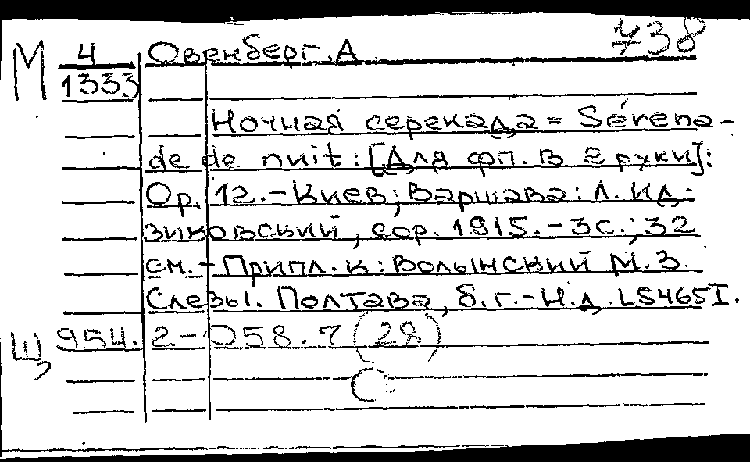 738
М 4 Овенберг. А
1333
Ночная серенада = Sérena-
de de nuit: [Для фп. в 2 руки]:
Op. 12. - Киев; Варшава: Л. Ид-
зиковский, cop. 1915. - 3 с.; 32
см. - Припл. к: Волынский М. З.
Слезы. Полтава, б. г. - Н. д. L5465I.
Щ 954.2-О58.7 (28)